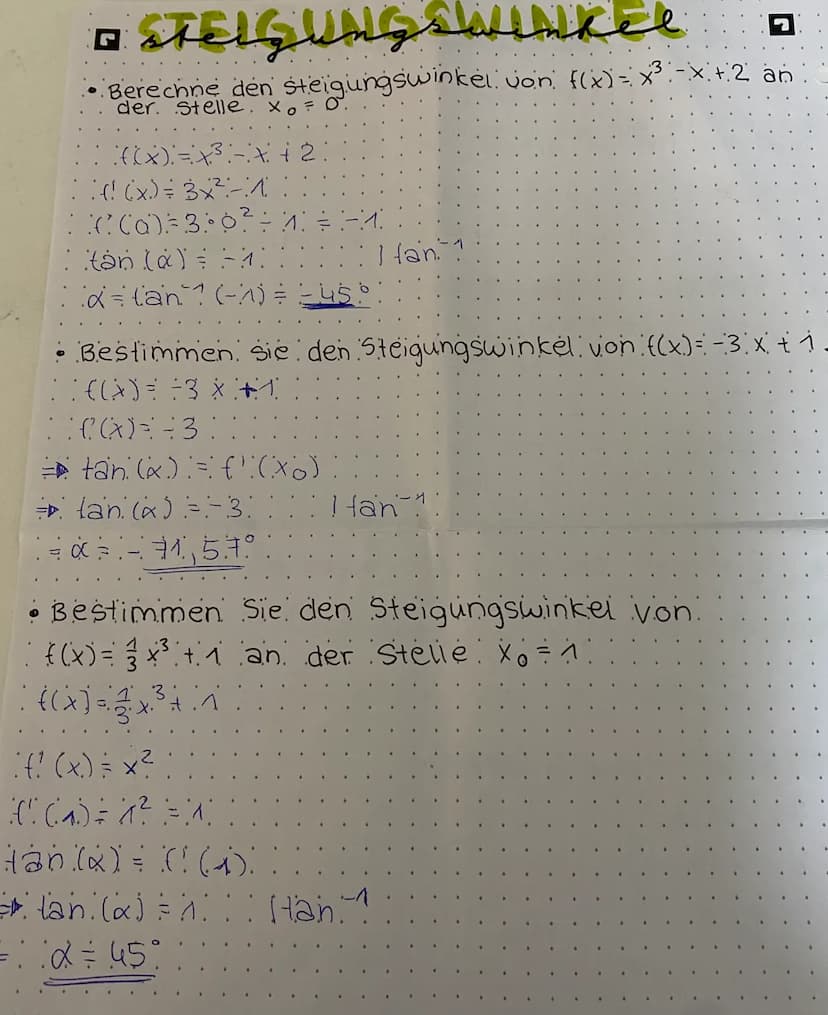 STEIGUNGSWINKEL
steigungswinkel
• Berechne den Steigungswinkel von f(x) = x³ - x + 2 an
der Stelle x₀ = 0
f(x) = x³ - x + 2
f'(x) = 3x² - 1
f'(0) = 3 · 0² - 1 = -1
tan(α) = -1 | tan⁻¹
α = tan⁻¹(-1) = -45°
• Bestimmen Sie den Steigungswinkel von f(x) = -3x + 1.
f(x) = -3x + 1
f'(x) = -3
⇒ tan(α) = f'(x₀)
⇒ tan(α) = -3 | tan⁻¹
= α = -71,57°
• Bestimmen Sie den Steigungswinkel von
f(x) = 1/3 x³ + 1 an der Stelle x₀ = 1
f(x) = 1/3 x³ + 1
f'(x) = x²
f'(1) = 1² = 1
tan(α) = f'(1)
⇒ tan(α) = 1 | tan⁻¹
= α = 45°